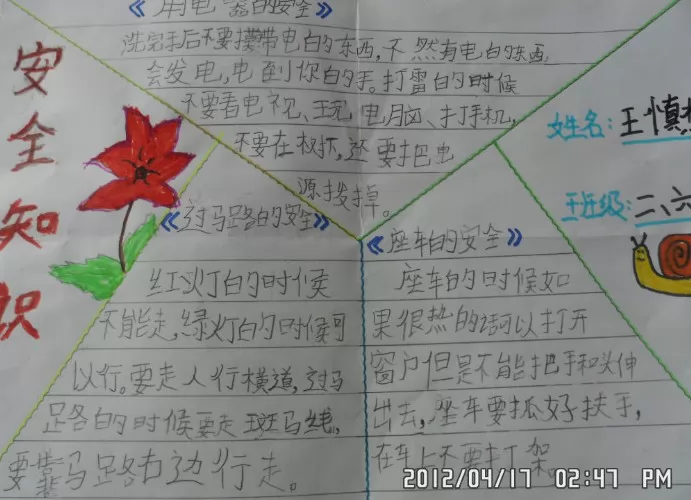 安全知识
《用电器的安全》
洗完手后不要摸带电的东西,不然有电的东西,
会发电,电到你的手。打雷的时候
不要看电视、玩电脑、打手机,
不要在权坏,还要把电
源拔掉。
《过马路的安全》
红灯的时候
不能走,绿灯的时候可
以行。要走人行横道,过马
路的时候要走斑马线,
要靠马路右边行走。
《座车的安全》
座车的时候如
果很热的话可以打开
窗户但是不能把手和头伸
出去,座车要抓好扶手,
在车上不要打架。
姓名:王慎
班级:二、六
2012/04/17 02:47 PM